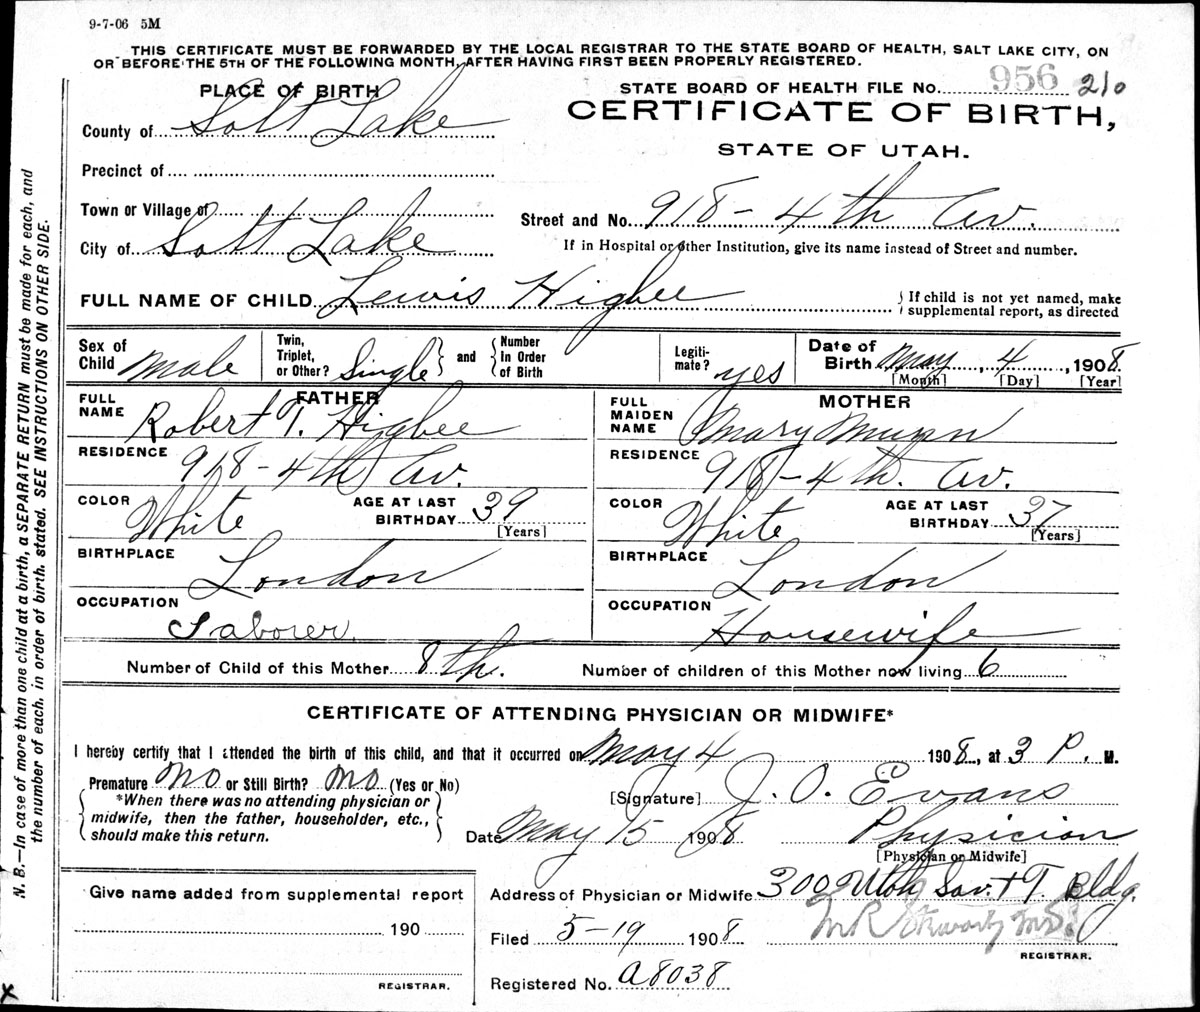 9-7-06 5M
THIS CERTIFICATE MUST BE FORWARDED BY THE LOCAL REGISTRAR TO THE STATE BOARD OF HEALTH, SALT LAKE CITY, ON
OR BEFORE THE 5TH OF THE FOLLOWING MONTH, AFTER HAVING FIRST BEEN PROPERLY REGISTERED.
PLACE OF BIRTH
County of Salt Lake
Precinct of
Town or Village of
City of Salt Lake
STATE BOARD OF HEALTH FILE NO. 956 210
CERTIFICATE OF BIRTH,
STATE OF UTAH.
Street and No. 918 - 4th Av.
If in Hospital or other Institution, give its name instead of Street and number.
FULL NAME OF CHILD Lewis Higbee
If child is not yet named, make
supplemental report, as directed
Sex of Child Male
Twin, Triplet, or Other? Single and Number In Order of Birth
Legitimate? yes
Date of Birth May, 4, 1908
[Month] [Day] [Year]
FATHER
FULL NAME Robert T. Higbee
RESIDENCE 918 - 4th Av.
COLOR White AGE AT LAST BIRTHDAY 39
[Years]
BIRTHPLACE London
OCCUPATION
Laborer
MOTHER
FULL MAIDEN NAME Mary Munn
RESIDENCE 918 - 4th. Av.
COLOR White AGE AT LAST BIRTHDAY 37
[Years]
BIRTHPLACE London
OCCUPATION
Housewife
Number of Child of this Mother 8th. Number of children of this Mother now living 6
CERTIFICATE OF ATTENDING PHYSICIAN OR MIDWIFE*
I hereby certify that I attended the birth of this child, and that it occurred on May 4 1908, at 3 P. M.
Premature No or Still Birth? No (Yes or No)
*When there was no attending physician or
midwife, then the father, householder, etc.,
should make this return.
[Signature] J. O. Evans
Date May 15 1908 Physician
[Physician or Midwife]
Give name added from supplemental report
190
REGISTRAR.
Address of Physician or Midwife 300 Utah Sav. + T. Bldg.
Filed 5-19 1908 M R Stewart M.D.
REGISTRAR.
Registered No. A8038
N. B.—In case of more than one child at a birth, a SEPARATE RETURN must be made for each, and
the number of each, in order of birth, stated. SEE INSTRUCTIONS ON OTHER SIDE.
X